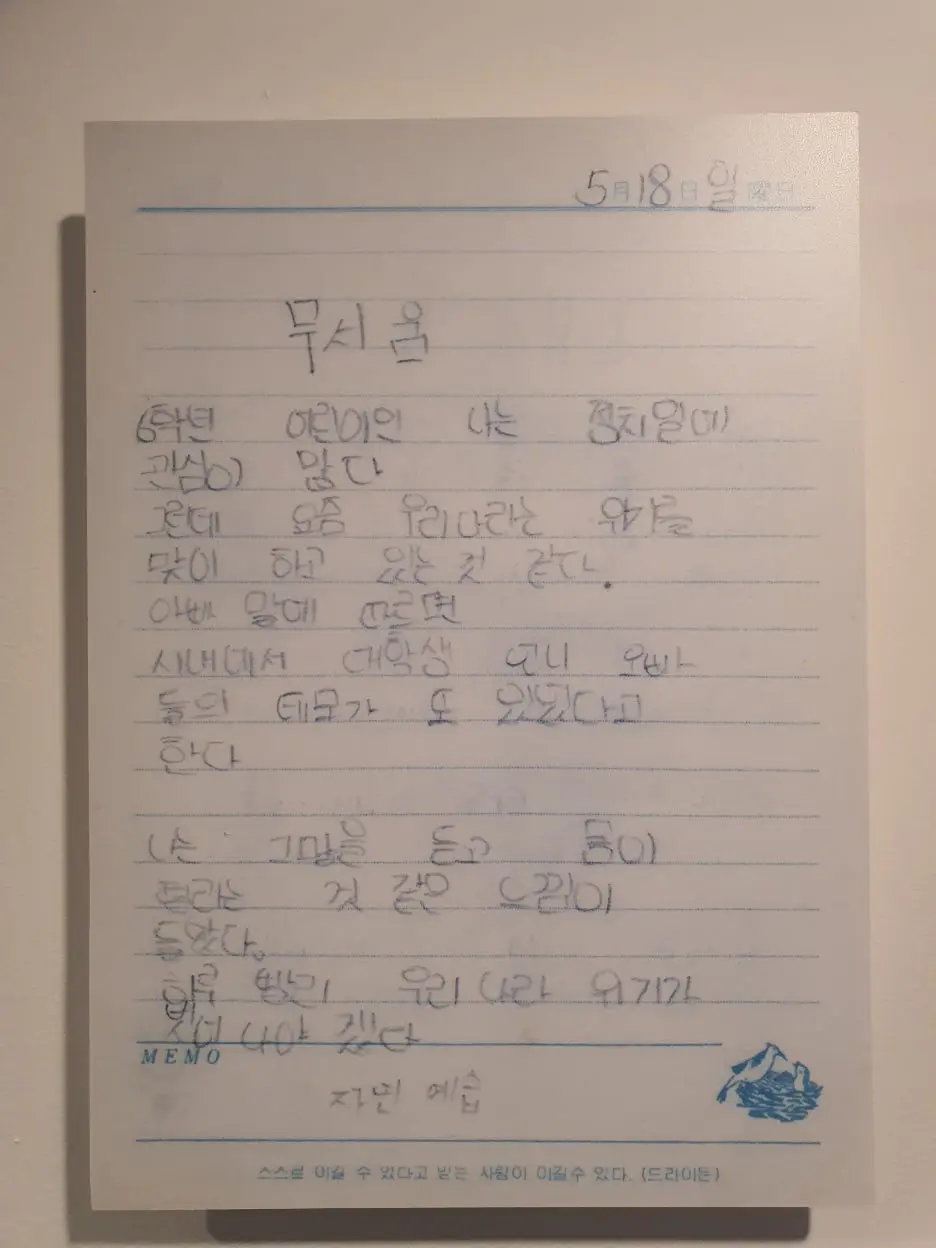 5月18日 일曜日
무서움
6학년 어린이인 나는 정치일에
관심이 많다
그런데 요즘 우리나라는 위기를
맞이 하고 있는 것 같다.
아빠 말에 따르면
시내에서 대학생 언니 오빠
들의 데모가 또 있었다고
한다
나는 그말을 듣고 몸이
떨리는 것 같은 느낌이
들었다.
하루 빨리 우리 나라 위기가
벗어 나야 겠다
MEMO
스스로 이길 수 있다고 믿는 사람이 이길수 있다. (드라이든)